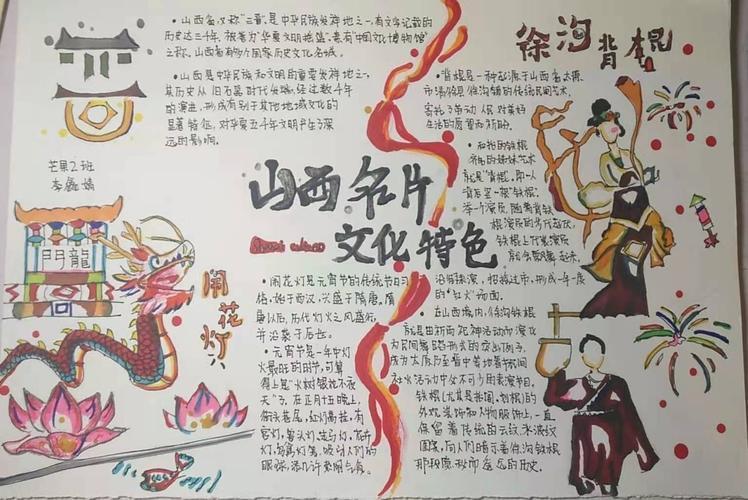 山西省，又称"三晋"，是中华民族发祥地之一，有文字记载的
历史达三千年，被誉为"华夏文明摇篮"，素有"中国文化博物馆"
之称。山西省有6个国家历史文化名城。
山西是中华民族和文明的重要发祥地之一，
其历史从旧石器时代发端，经过数千年
的演进，形成有别于其他地域文化的
显著特征，对华夏五千年文明产生了深
远的影响。
芒果2班
李 婧
門龍
闹花灯
山西名片
文化特色
闹花灯是元宵节的传统节日习
俗，始于西汉，兴盛于隋唐，隋
唐以后，历代灯火之风盛行，
并沿袭于后世。
元宵节是一年中灯
火最旺的时节，可算
得上是"火树银花不夜
天"了，在正月十五晚上，
街头巷尾，红灯高挂，有
宫灯，兽头灯，走马灯，花卉
灯，鸟禽灯等，吸引人们的
眼球，添几许热闹气息。
徐沟背棍
背棍是一种起源于山西省太原
市清徐县徐沟镇的传统民间艺术，
寄托了劳动人民对美好
生活的愿望和祈盼。
和我的铁棍
就是"背棍"，即一人
背负一架"铁棍"，
铁棍上下表演员
沿街表演，招摇过市，形成一年一度
的"红火"场面。
在山西境内，徐沟铁棍
就是由祈雨祀神活动而演化
为民间舞蹈形式的突出例子，
成为太原乃至晋中等地春节民间
社火活动中必不可少的表演节目。
铁棍(尤其是抬阁，抬棍)的
外观装饰和人物服饰上，一直
保留着传统的云纹，水波纹
图案，向人们暗示着徐沟铁棍
那段原始而悠远的历史。